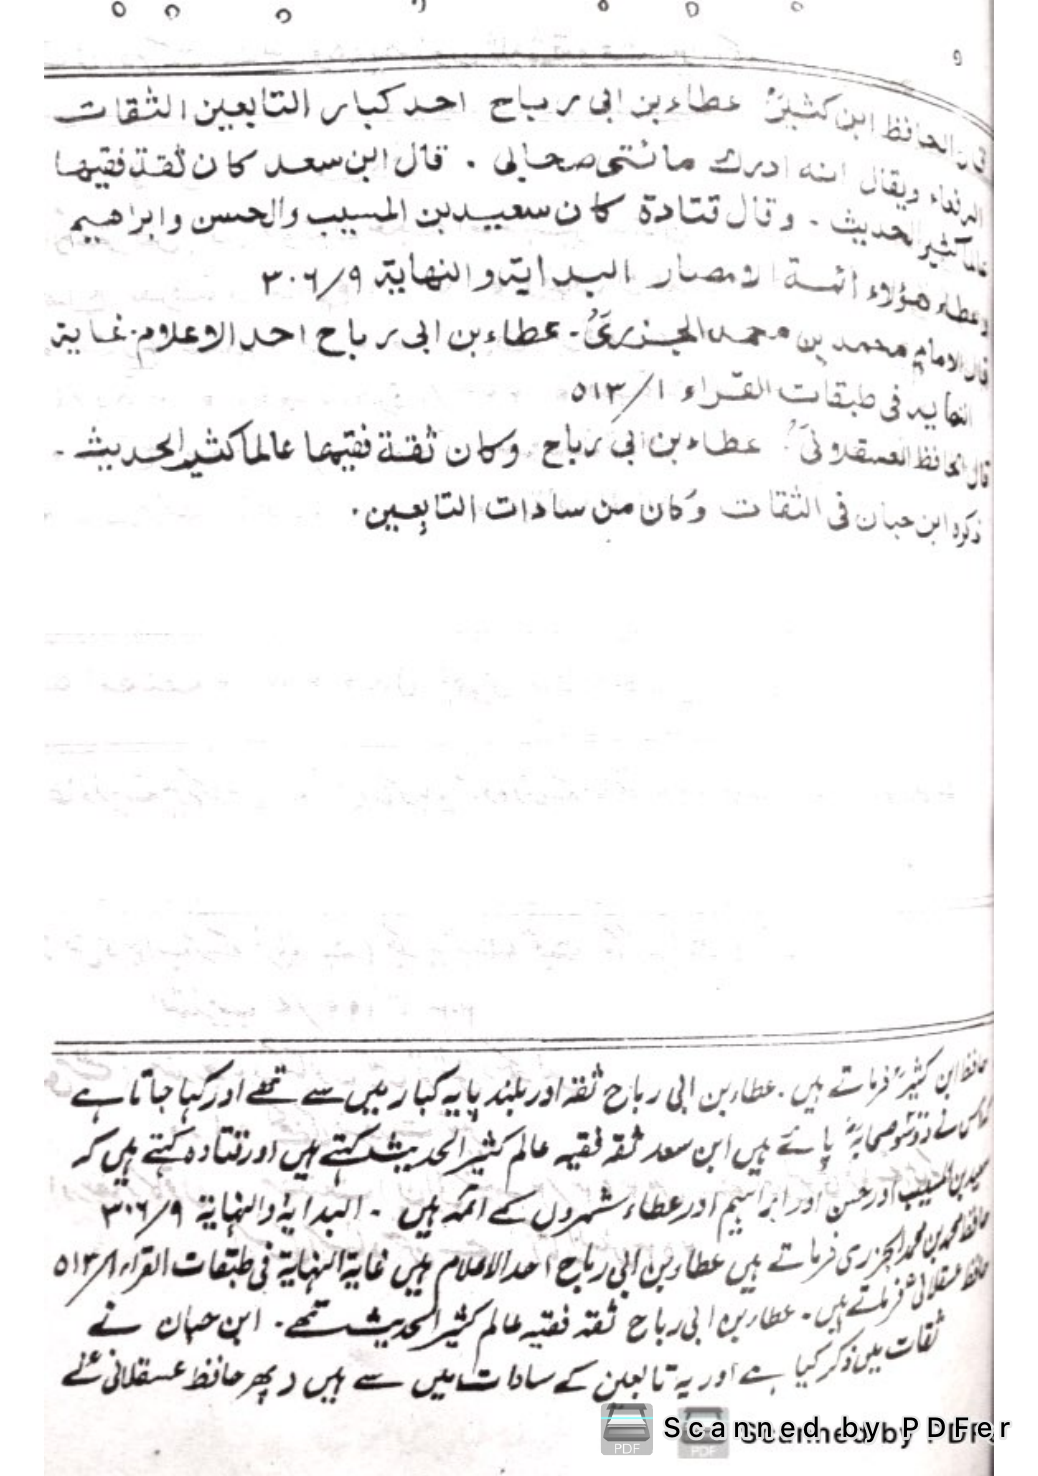 ۹
قال الحافظ ابن كثيرؒ عطاء بن ابی رباح احد كبار التابعين الثقات
الرفعاء ويقال انه ادرك مائتی صحابی . قال ابن سعد كان ثقة فقيها
عالما كثير الحديث . وقال قتادة كان سعيد بن المسيب والحسن وابراهيم
وعطاء هؤلاء ائمة الامصار البداية والنهاية ۹/۳۰۶
قال الامام محمد بن محمد الجزریؒ . عطاء بن ابی رباح احد الاعلام . غاية
النهايه فی طبقات القراء ۱/۵۱۳
قال الحافظ العسقلانیؒ عطاء بن ابی رباح وكان ثقة فقيها عالما كثير الحديث .
ذكره ابن حبان فی الثقات وكان من سادات التابعين .
حافظ ابن کثیرؒ فرماتے ہیں . عطاء بن ابی رباح ثقہ اور بلند پایہ کبار میں سے تھے اور کہا جاتا ہے
نے دو سو صحابہؓ پائے ہیں ابن سعد ثقہ فقیہ عالم کثیر الحدیث کہتے ہیں اور قتادہ کہتے ہیں کہ
سعید بن المسیب اور حسن اور ابراہیم اور عطاء شہروں کے ائمہ ہیں . البدایۃ والنہایۃ ۹/۳۰۶
حافظ محمد بن محمد الجزری فرماتے ہیں عطاء بن ابی رباح احد الاعلام ہیں غایۃ النہایۃ فی طبقات القراء ۱/۵۱۳
حافظ عسقلانیؒ فرماتے ہیں . عطاء بن ابی رباح ثقہ فقیہ عالم کثیر الحدیث تھے . ابن حبان نے
ثقات میں ذکر کیا ہے اور یہ تابعین کے سادات میں سے ہیں ( پھر حافظ عسقلانیؒ نے
Scanned by PDFer
Scanned by PDFer